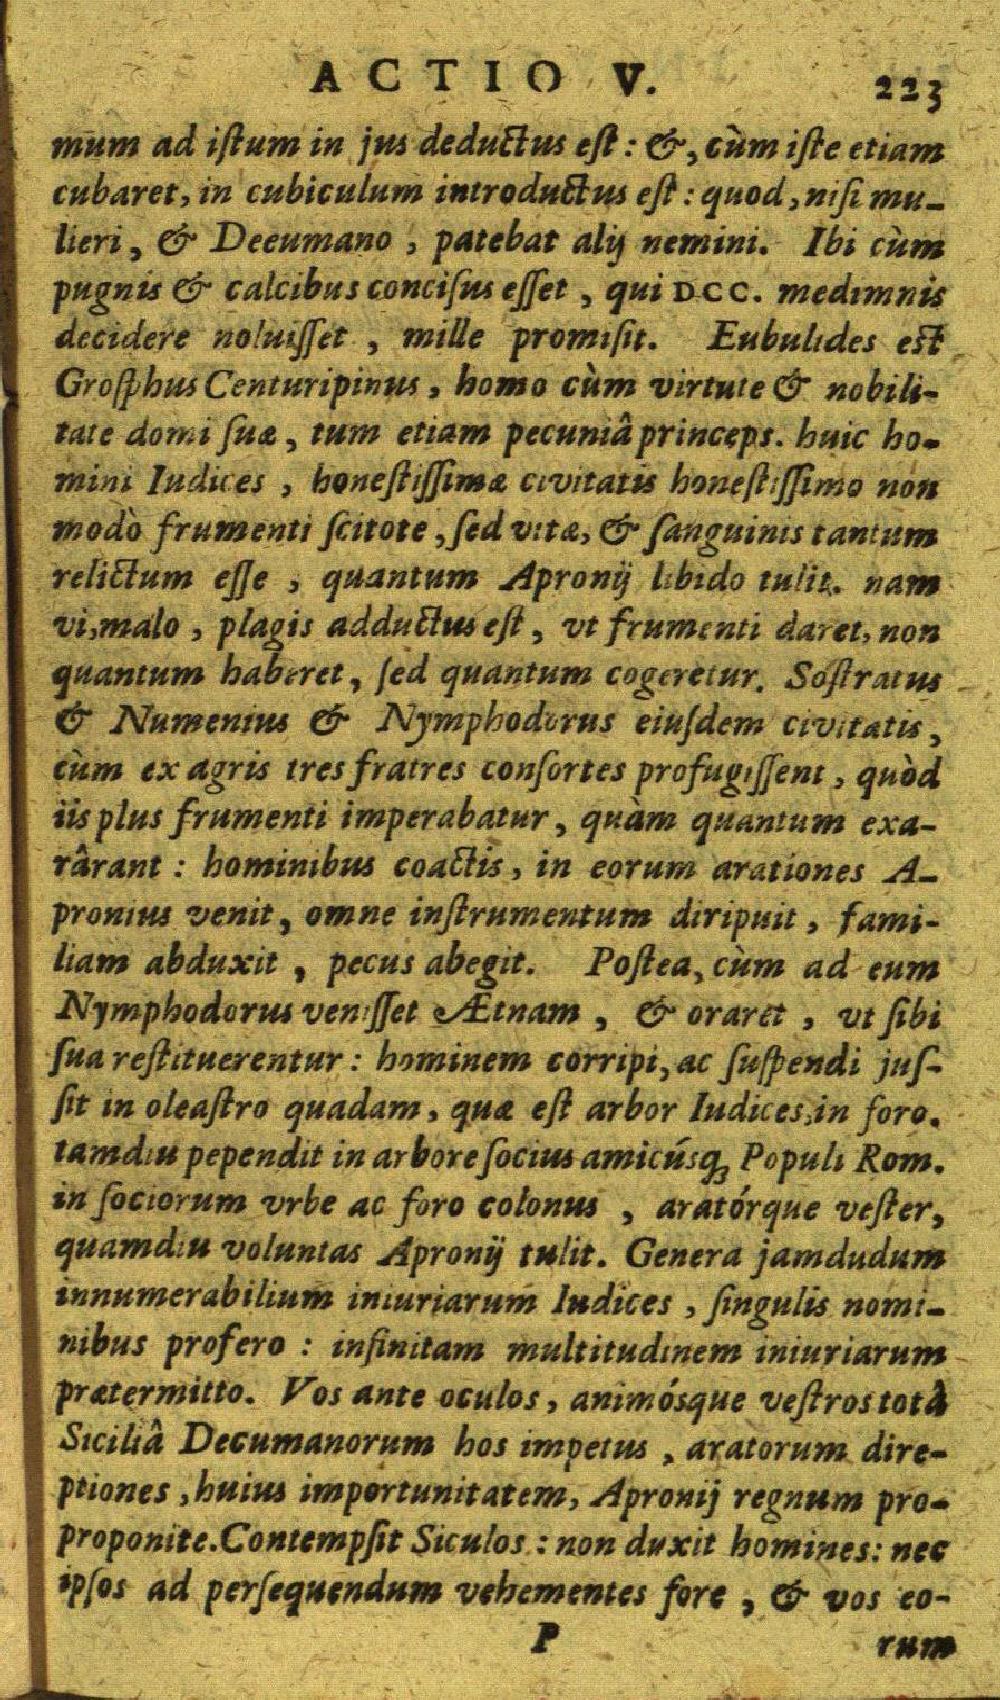 ACTIO V. 223
mum ad istum in jus deductus est: &, cùm iste etiam
cubaret, in cubiculum introductus est: quod, nisi mu-
lieri, & Deeumano, patebat alij nemini. Ibi cùm
pugnis & calcibus concisus esset, qui DCC. medimnis
decidere noluisset, mille promisit. Eubulides est
Grosphus Centuripinus, homo cùm virtute & nobili-
tate domi suæ, tum etiam pecuniâ princeps. huic ho-
mini Iudices, honestissimæ civitatis honestissimo non
modò frumenti scitote, sed vitæ, & sanguinis tantum
relictum esse, quantum Apronij libido tulit. nam
vi, malo, plagis adductus est, vt frumenti daret, non
quantum haberet, sed quantum cogeretur. Sostratus
& Numenius & Nymphodorus eiusdem civitatis,
cùm ex agris tres fratres consortes profugissent, quòd
iis plus frumenti imperabatur, quàm quantum exa-
rârant: hominibus coactis, in eorum arationes A-
pronius venit, omne instrumentum diripuit, fami-
liam abduxit, pecus abegit. Postea, cùm ad eum
Nymphodorus venisset Ætnam, & oraret, vt sibi
sua restituerentur: hominem corripi, ac suspendi jus-
sit in oleastro quadam, quæ est arbor Iudices, in foro.
tamdiu pependit in arbore socius amicúsq; Populi Rom.
in sociorum vrbe ac foro colonus, aratórque vester,
quamdiu voluntas Apronij tulit. Genera jamdudum
innumerabilium iniuriarum Iudices, singulis nomi-
nibus profero: infinitam multitudinem iniuriarum
prætermitto. Vos ante oculos, animósque vestros totâ
Siciliâ Decumanorum hos impetus, aratorum dire-
ptiones, huius importunitatem, Apronij regnum pro-
proponite. Contempsit Siculos: non duxit homines: nec
ipsos ad persequendum vehementes fore, & vos eo-
P rum